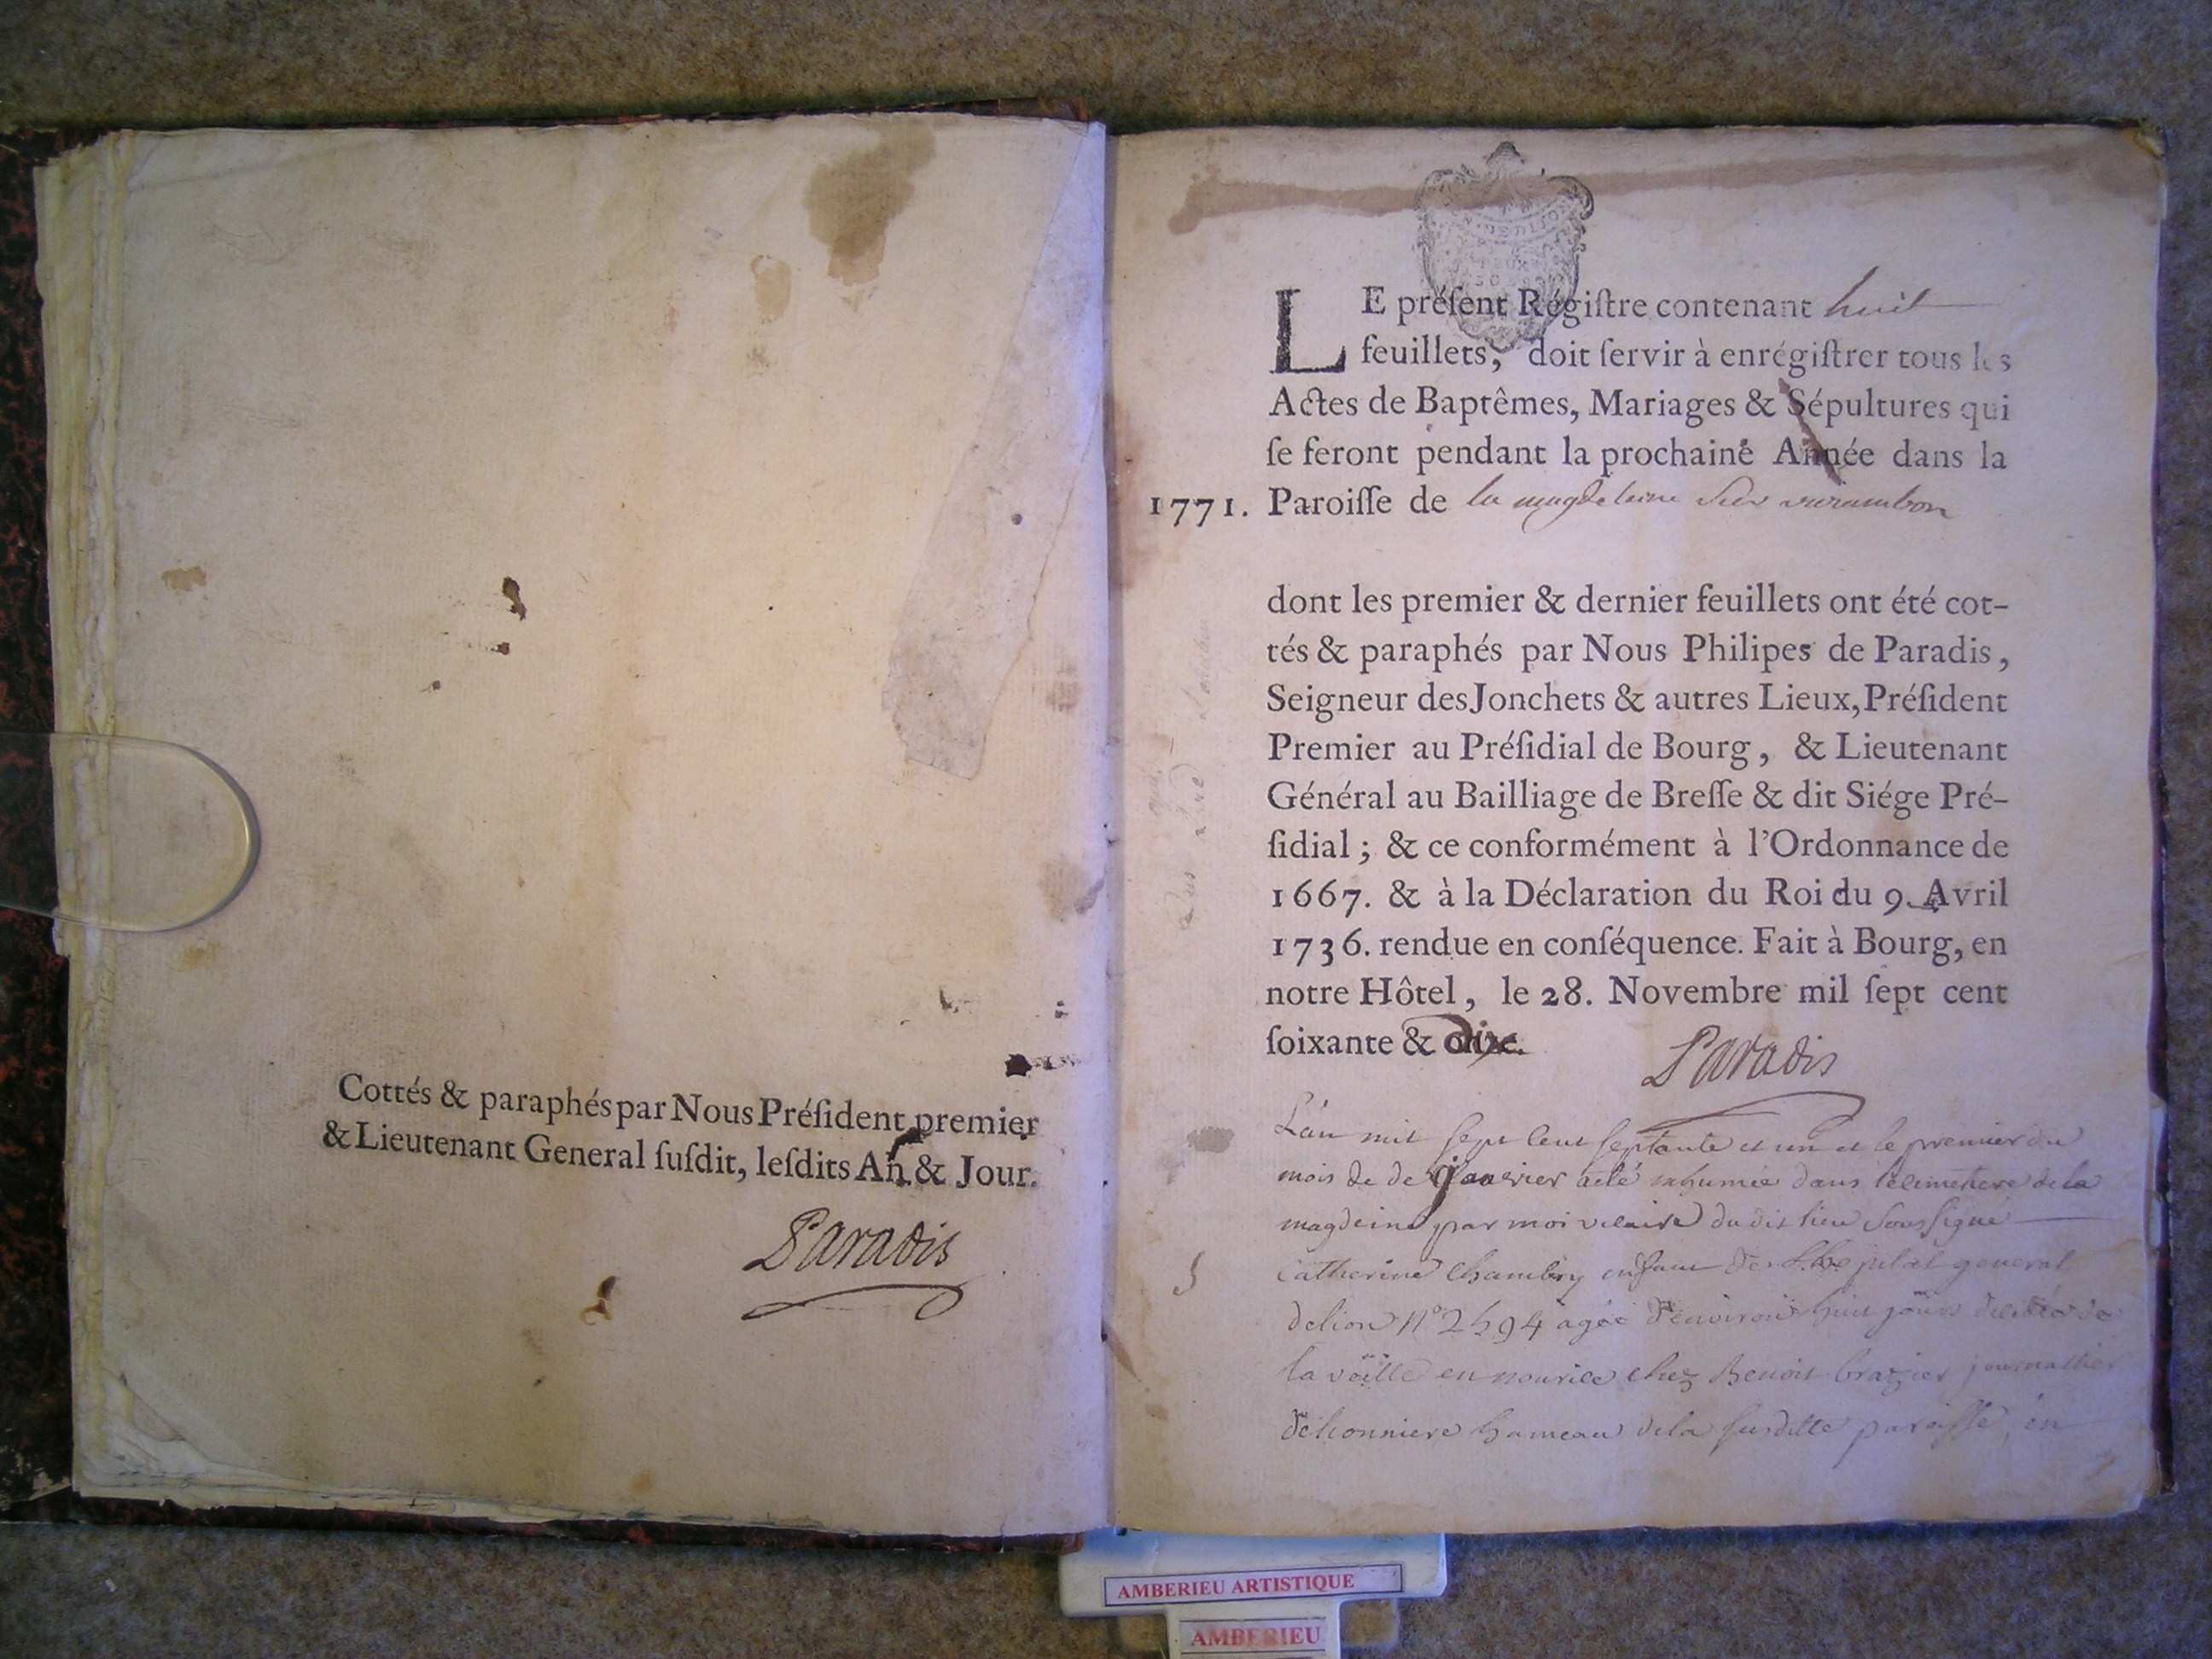 Cottés & paraphés par Nous Préſident premier
& Lieutenant General ſuſdit, leſdits An & Jour.
Paradis
LE préſent Régiſtre contenant huit
feuillets, doit ſervir à enrégiſtrer tous les
Actes de Baptêmes, Mariages & Sépultures qui
ſe feront pendant la prochaine Année dans la
1771. Paroiſſe de la magdelaine sur varambon
dont les premier & dernier feuillets ont été cot-
tés & paraphés par Nous Philipes de Paradis,
Seigneur des Jonchets & autres Lieux, Préſident
Premier au Préſidial de Bourg, & Lieutenant
Général au Bailliage de Breſſe & dit Siége Pré-
ſidial ; & ce conformément à l'Ordonnance de
1667. & à la Déclaration du Roi du 9. Avril
1736. rendue en conſéquence. Fait à Bourg, en
notre Hôtel, le 28. Novembre mil ſept cent
ſoixante & dix.
Paradis
L'an mil sept cent septante et un et le premier du
mois de de janvier a eté inhumée dans le cimetiere de la
magdeine par moi vicaire du dit lieu soussigné
Catherine Chambry enfant de general
delion n° 2594 agée d'environ huit jours de
la veille en nourice chez Benoit brazier journallier
hameau dela susditte paroisse, en
AMBERIEU ARTISTIQUE
AMBERIEU